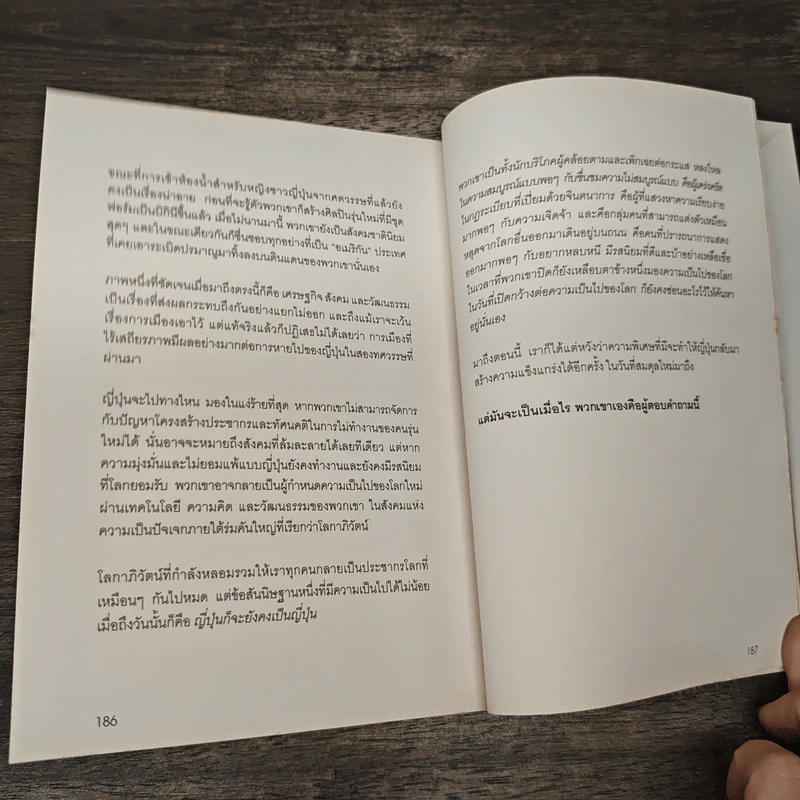 ขณะที่การเข้าห้องน้ำสำหรับหญิงชาวญี่ปุ่นจากศตวรรษที่แล้วยัง
คงเป็นเรื่องน่าอาย ก่อนที่จะรู้ตัวพวกเขาก็สร้างศิลปินรุ่นใหม่ที่มีชุด
ฟอร์มเป็นบิกินีขึ้นแล้ว เมื่อไม่นานมานี้ พวกเขายังเป็นสังคมชาตินิยม
สุดๆ และในขณะเดียวกันก็ชื่นชอบทุกอย่างที่เป็น "อเมริกัน" ประเทศ
ที่เคยเอาระเบิดปรมาณูมาทิ้งลงบนดินแดนของพวกเขานั่นเอง
ภาพหนึ่งที่ชัดเจนเมื่อมาถึงตรงนี้ก็คือ เศรษฐกิจ สังคม และวัฒนธรรม
เป็นเรื่องที่ส่งผลกระทบถึงกันอย่างแยกไม่ออก และถึงแม้เราจะเว้น
เรื่องการเมืองเอาไว้ แต่แท้จริงแล้วก็ปฏิเสธไม่ได้เลยว่า การเมืองที่
ไร้เสถียรภาพมีผลอย่างมากต่อการหายไปของญี่ปุ่นในสองทศวรรษที่
ผ่านมา
ญี่ปุ่นจะไปทางไหน มองในแง่ร้ายที่สุด หากพวกเขาไม่สามารถจัดการ
กับปัญหาโครงสร้างประชากรและทัศนคติในการไม่ทำงานของคนรุ่น
ใหม่ได้ นั่นอาจจะหมายถึงสังคมที่ล้มละลายได้เลยทีเดียว แต่หาก
ความมุ่งมั่นและไม่ยอมแพ้แบบญี่ปุ่นยังคงทำงานและยังคงมีรสนิยม
ที่โลกยอมรับ พวกเขาอาจกลายเป็นผู้กำหนดความเป็นไปของโลกใหม่
ผ่านเทคโนโลยี ความคิด และวัฒนธรรมของพวกเขา ในสังคมแห่ง
ความเป็นปัจเจกภายใต้ร่มคันใหญ่ที่เรียกว่าโลกาภิวัตน์
โลกาภิวัตน์ที่กำลังหลอมรวมให้เราทุกคนกลายเป็นประชากรโลกที่
เหมือนๆ กันไปหมด แต่ข้อสันนิษฐานหนึ่งที่มีความเป็นไปได้ไม่น้อย
เมื่อถึงวันนั้นก็คือ ญี่ปุ่นก็จะยังคงเป็นญี่ปุ่น
186
พวกเขาเป็นทั้งนักบริโภคผู้คล้อยตามและเพิกเฉยต่อกระแส หลงใหล
ในความสมบูรณ์แบบพอๆ กับชื่นชมความไม่สมบูรณ์แบบ คือผู้เคร่งครัด
ในกฎระเบียบที่เปี่ยมด้วยจินตนาการ คือผู้ที่แสวงหาความเรียบง่าย
มากพอๆ กับความเจิดจ้า และคือกลุ่มคนที่สามารถแต่งตัวเหมือน
หลุดจากโลกอื่นออกมาเดินอยู่บนถนน คือคนที่ปรารถนาการแสดง
ออกมากพอๆ กับอยากหลบหนี มีรสนิยมที่ดีและบ้าอย่างเหลือเชื่อ
ในเวลาที่พวกเขาปิดก็ยังเหลือบตาข้างหนึ่งมองความเป็นไปของโลก
ในวันที่เปิดกว้างต่อความเป็นไปของโลก ก็ยังคงซ่อนอะไรไว้ให้ค้นหา
อยู่นั่นเอง
มาถึงตอนนี้ เราก็ได้แต่หวังว่าความพิเศษที่มีจะทำให้ญี่ปุ่นกลับมา
สร้างความแข็งแกร่งได้อีกครั้ง ในวันที่สมดุลใหม่มาถึง
แต่มันจะเป็นเมื่อไร พวกเขาเองคือผู้ตอบคำถามนี้
187